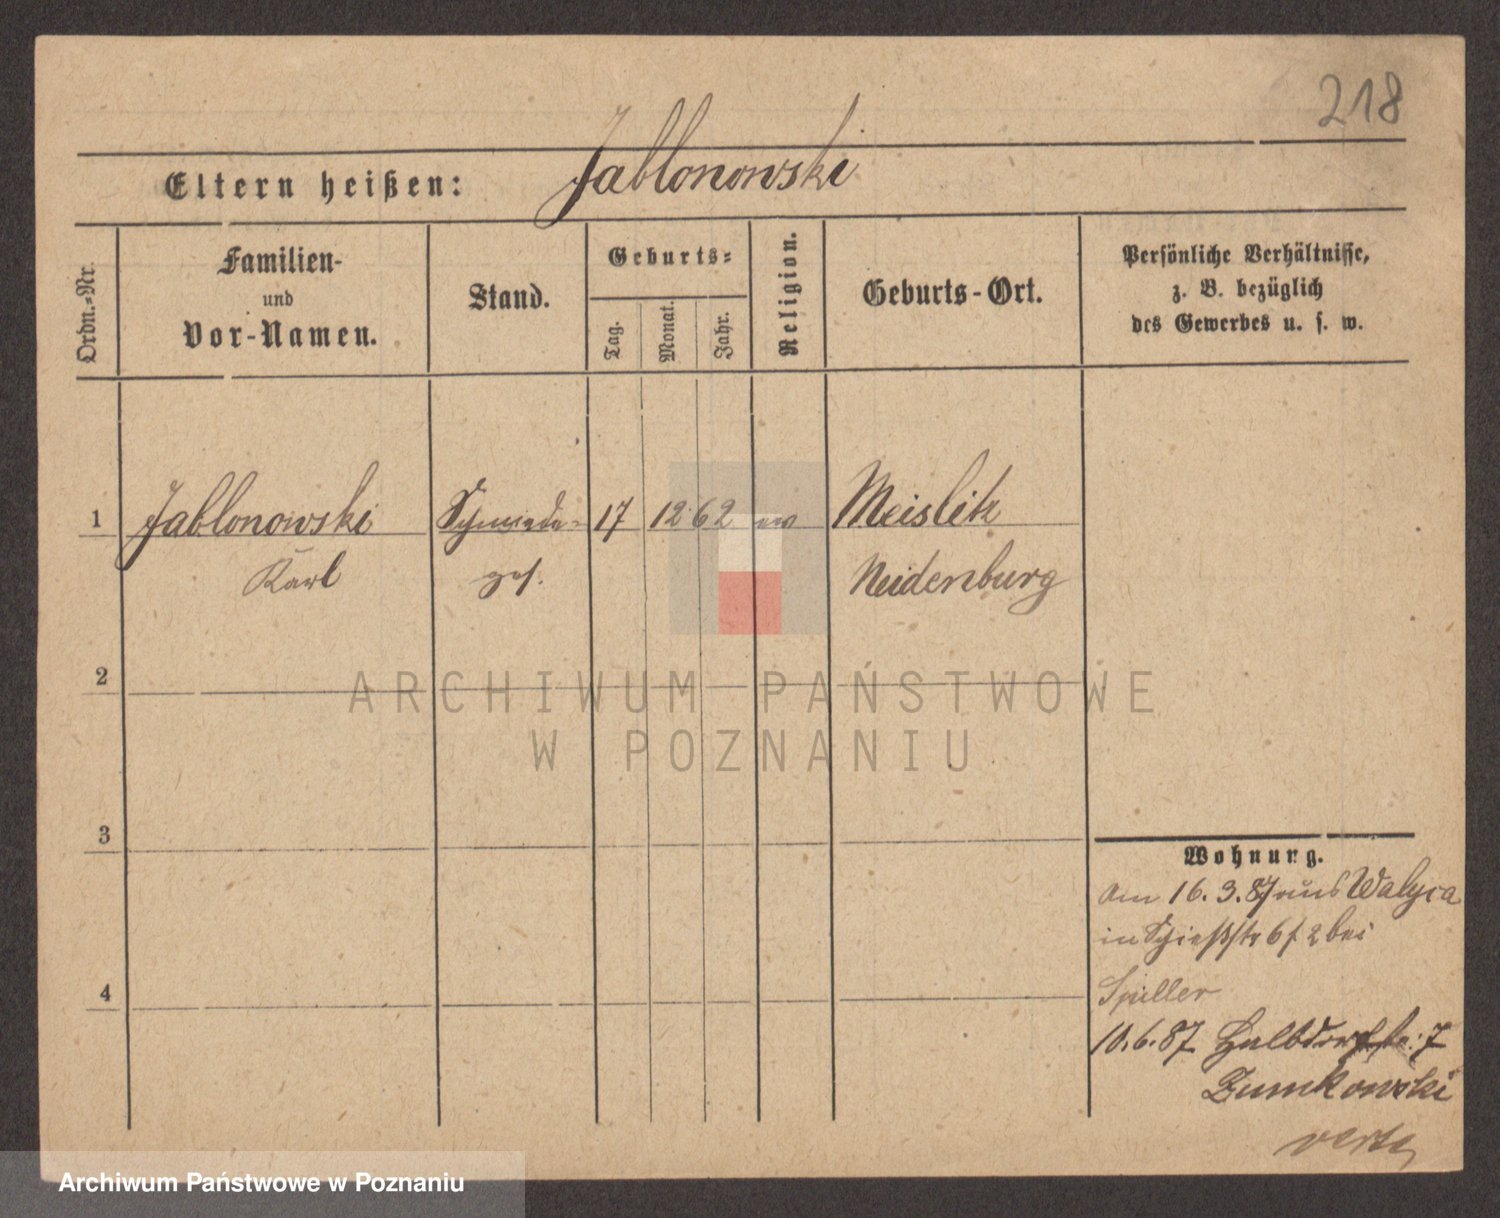 218
Eltern heißen: Jablonowski
Ordn.=Nr.
Familien-
und
Vor-Namen.
Stand.
Geburts=
Tag.
Monat.
Jahr.
Religion.
Geburts-Ort.
Persönliche Verhältnisse,
z. B. bezüglich
des Gewerbes u. s. w.
1 Jablonowski Schmiede= 17 12 62 ev Meislitz
Karl ges. Neidenburg
2
ARCHIWUM PAŃSTWOWE
W POZNANIU
3
4
Wohnung.
Am 16.3.87 aus
in Schießstr 6 f 2 bei
Spiller
10.6.87 Halbdorfstr: 7
verte
Archiwum Państwowe w Poznaniu